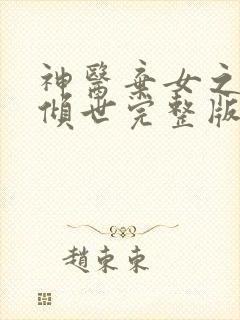 神醫棄女之
傾世完整版
趙東東